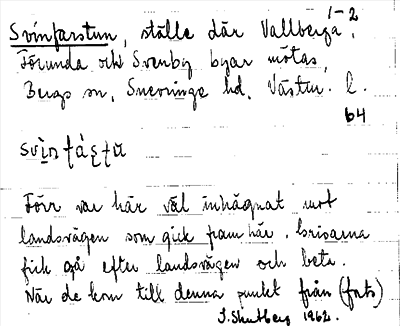 1-2
Svinfarstun, ställe där Vallberga,
Förunda och Svenby byar mötas,
Bergs sn, Snevringe hd, Västm. l.
64
Förr var här väl inhägnat mot
landsvägen som gick fram här. Grisarna
fick gå efter landsvägen och beta.
När de kom till denna punkt från (forts)
1962.